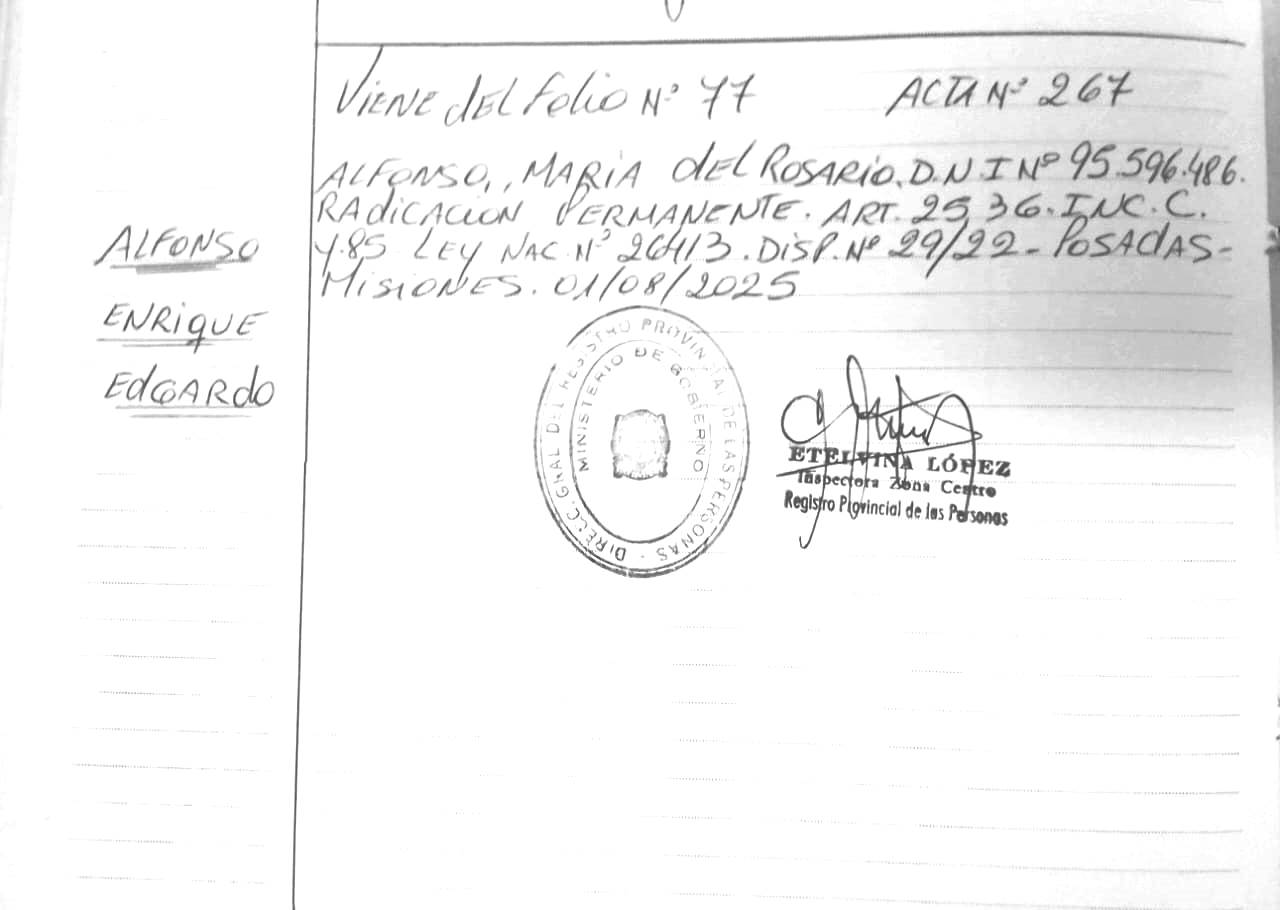 Viene del Folio Nº 77 ACTA Nº 267
ALFONSO, MARIA del ROSARIO. D.N.I Nº 95.596.486.
RAdicACION PERMANENTE. ART. 25, 36. INC. C.
Y 85 LEY NAC Nº 26413. DISP. Nº 29/22 - POSADAS-
MISIONES. 01/08/2025
ALFONSO
ENRiqUE
EdGARdo
DIRECC. GRAL DEL REGISTRO PROVINCIAL DE LAS PERSONAS -
MINISTERIO DE GOBIERNO
ETELVINA LÓPEZ
Inspectora Zona Centro
Registro Provincial de las Personas